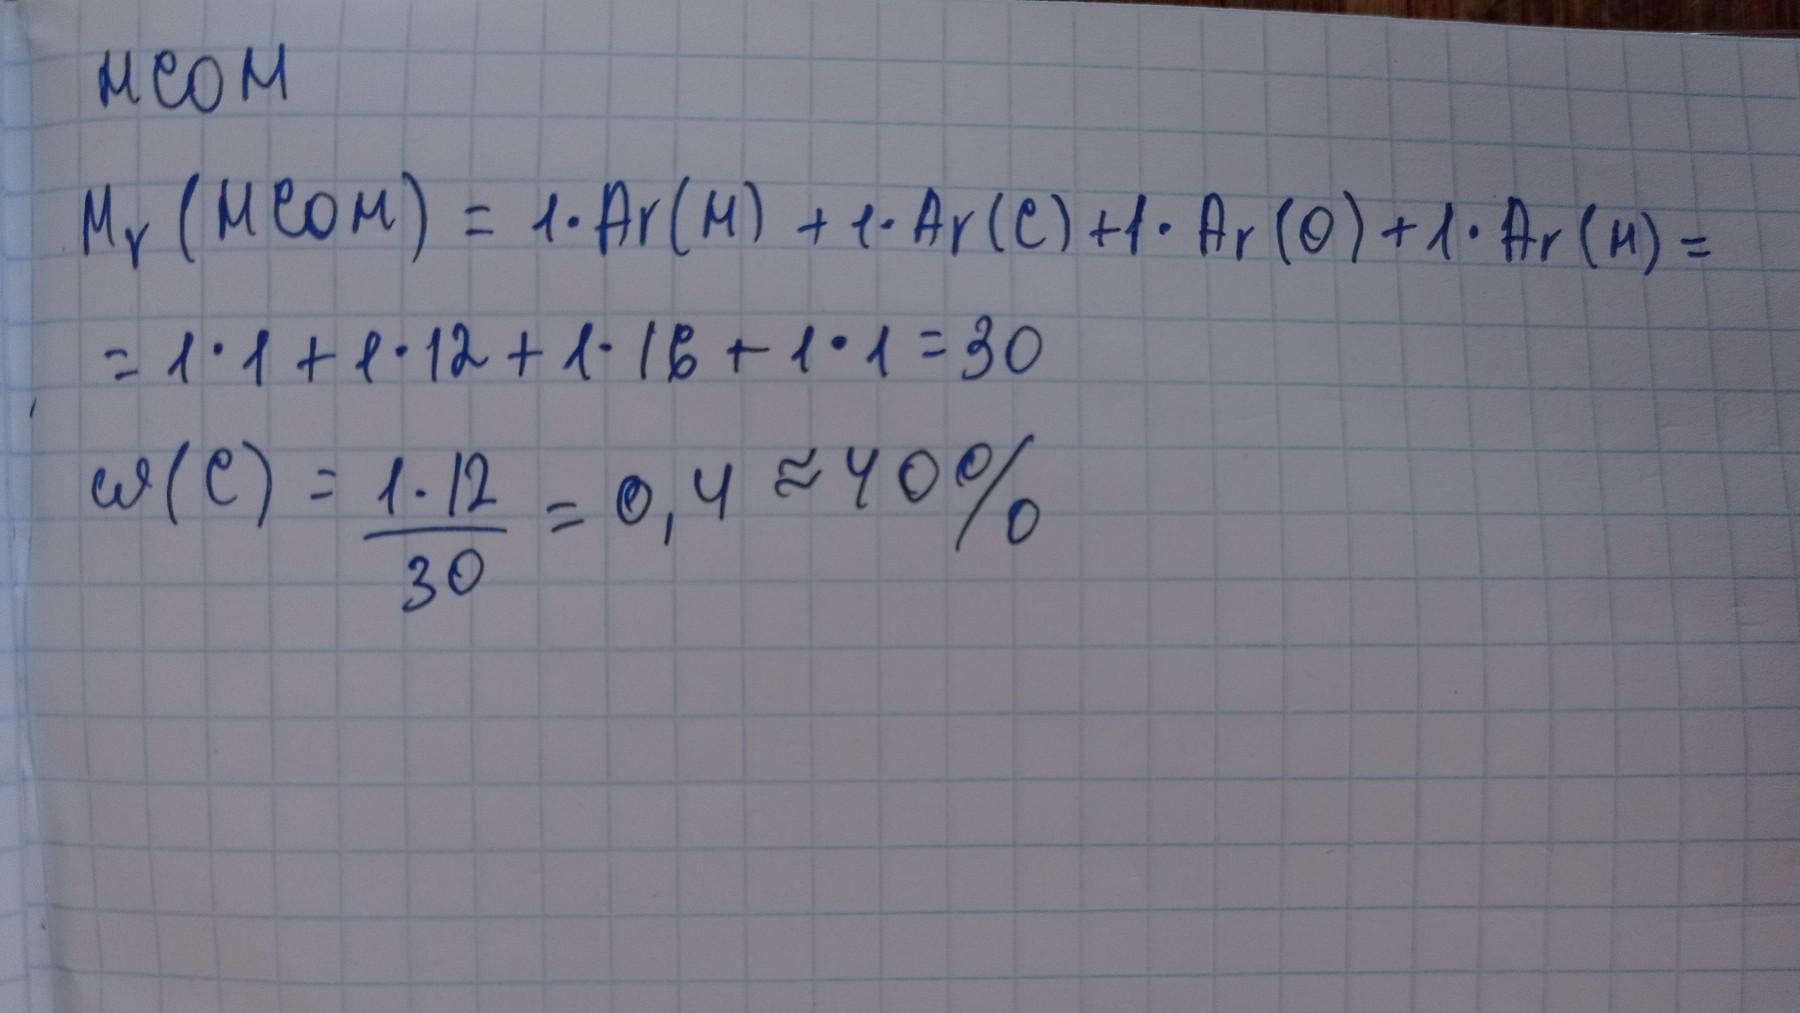 HCOH
Mr (HCOH) = 1·Ar(H) + 1·Ar(C) + 1·Ar(O) + 1·Ar(H) =
= 1·1 + 1·12 + 1·16 + 1·1 = 30
ω(C) = 1·12/30 = 0,4 ≈ 40%